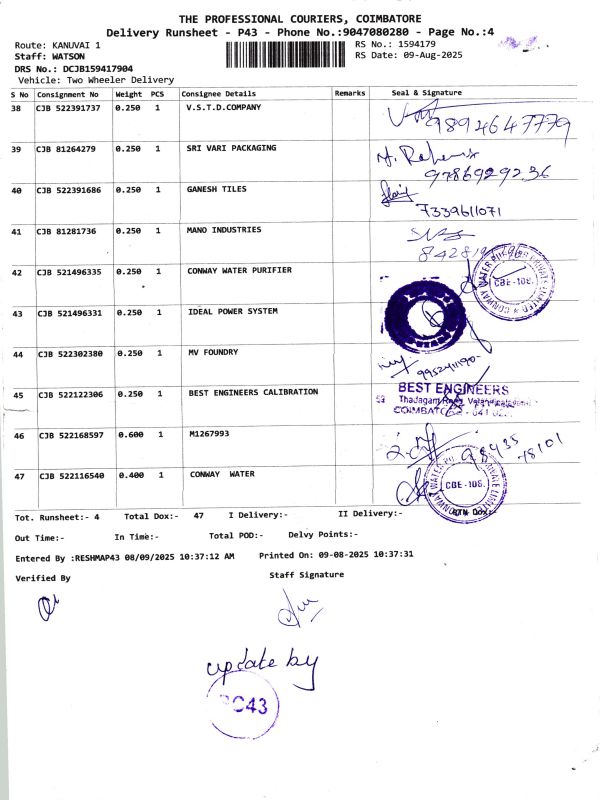 THE PROFESSIONAL COURIERS, COIMBATORE
Delivery Runsheet - P43 - Phone No.:9047080280 - Page No.:4
Route: KANUVAI 1
RS No.: 1594179
Staff: WATSON
RS Date: 09-Aug-2025
DRS No.: DCJB159417904
Vehicle: Two Wheeler Delivery
S No Consignment No Weight PCS Consignee Details Remarks Seal & Signature
38 CJB 522391737 0.250 1 V.S.T.D.COMPANY
9894647779
39 CJB 81264279 0.250 1 SRI VARI PACKAGING
9786929236
40 CJB 522391686 0.250 1 GANESH TILES
7339611071
41 CJB 81281736 0.250 1 MANO INDUSTRIES
42 CJB 521496335 0.250 1 CONWAY WATER PURIFIER
CBE-108.
43 CJB 521496331 0.250 1 IDEAL POWER SYSTEM
44 CJB 522302380 0.250 1 MV FOUNDRY
45 CJB 522122306 0.250 1 BEST ENGINEERS CALIBRATION
BEST ENGINEERS
Thadagam Road,
46 CJB 522168597 0.600 1 M1267993
98435
78101
47 CJB 522116540 0.400 1 CONWAY WATER
CBE-108.
Tot. Runsheet:- 4 Total Dox:- 47 I Delivery:- II Delivery:- RTN Dox:-
Out Time:- In Time:- Total POD:- Delvy Points:-
Entered By :RESHMAP43 08/09/2025 10:37:12 AM Printed On: 09-08-2025 10:37:31
Verified By Staff Signature
update by
PC43